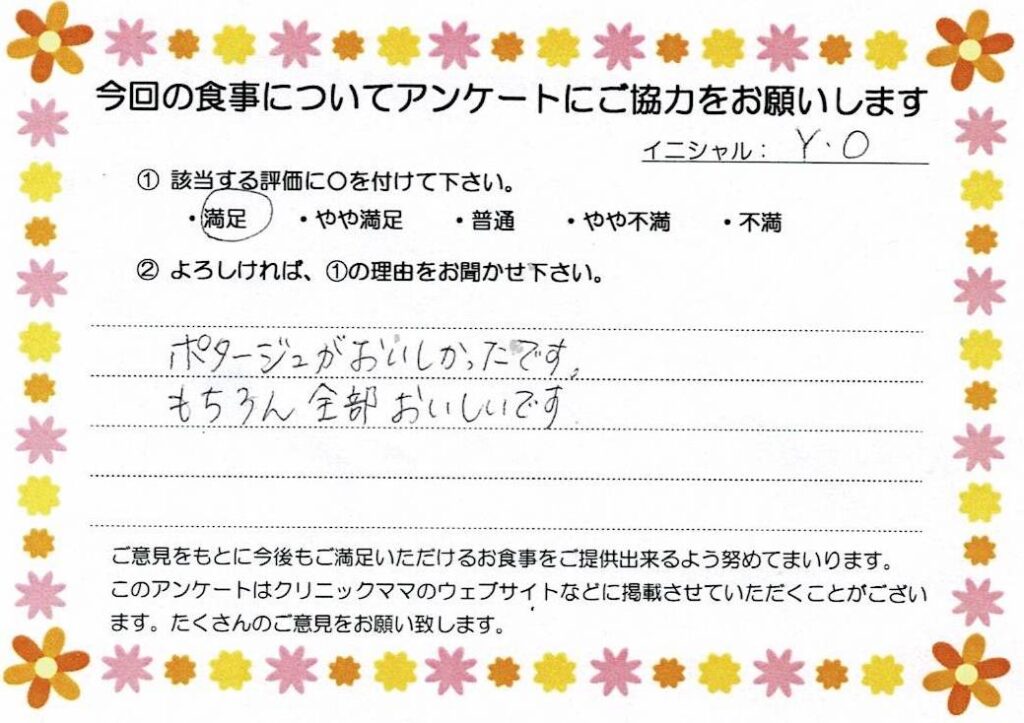 今回の食事についてアンケートにご協力をお願いします
イニシャル： Y.O
① 該当する評価に〇を付けて下さい。
・満足 ・やや満足 ・普通 ・やや不満 ・不満
② よろしければ、①の理由をお聞かせ下さい。
ポタージュがおいしかったです。
もちろん全部おいしいです
ご意見をもとに今後もご満足いただけるお食事をご提供出来るよう努めてまいります。
このアンケートはクリニックママのウェブサイトなどに掲載させていただくことがござい
ます。たくさんのご意見をお願い致します。